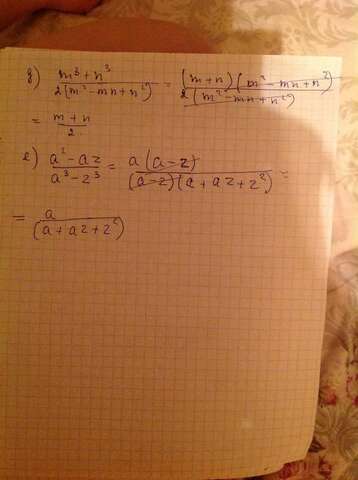 д) (m³ + n³)/(2(m² - mn + n²)) = ((m + n)(m² - mn + n²))/(2(m² - mn + n²))
= (m + n)/2
е) (a² - az)/(a³ - z³) = (a(a - z))/((a - z)(a + az + z²)) =
= a/((a + az + z²))